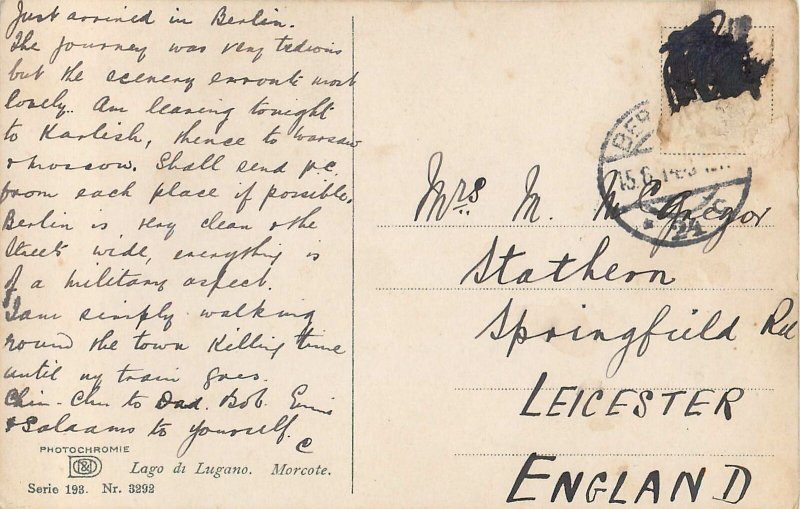 Just arrived in Berlin.
The journey was very tedious
but the scenery enroute most
lovely. Am leaving tonight
to Karlish, thence to Warsaw
& Moscow. Shall send p.c.
from each place if possible.
Berlin is very clean & the
Streets wide, everything is
of a military aspect.
I am simply walking
round the town killing time
until my train goes.
Chin-Chin to Dad. Bob. Ernie
& Salaams to yourself.
C
PHOTOCHROMIE
Lago di Lugano. Morcote.
Serie 193. Nr. 3292
BER
15.6.14
* 24 c
Mrs M. McGregor
Stathern
Springfield Rd
LEICESTER
ENGLAND